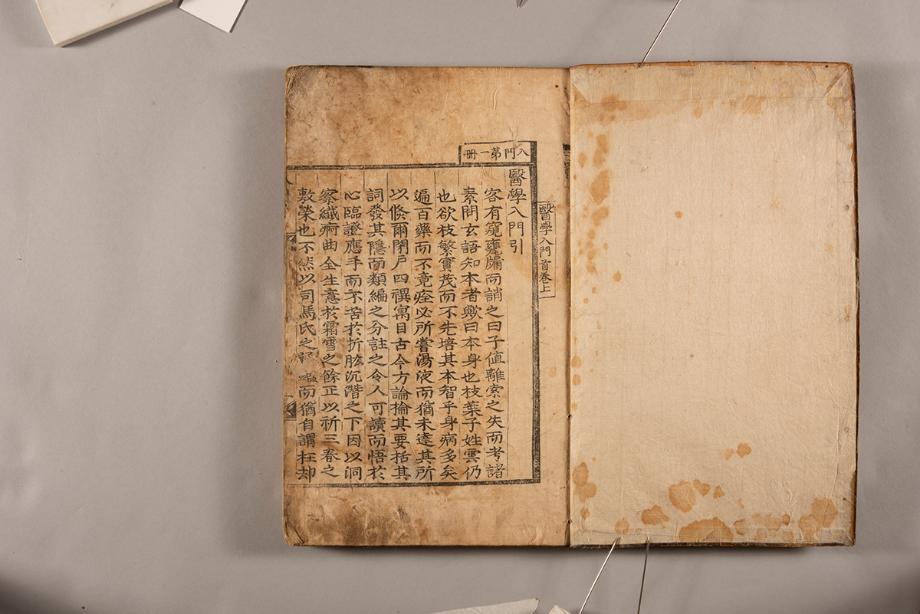 醫學入門首卷上
入門第一冊
醫學入門引
客有窺甕牖而誚之曰子值離索之失而考諸
素問玄語知本者歟曰本身也枝葉子姓雲仍
也欲枝繁實茂而不先培其本智乎身病多矣
遍百藥而不竟痊必所嘗湯液而猶未達其所
以俟爾閉戶四禩寓目古今方論掄其要括其
詞發其隱而類編之分註之令人可讀而悟扵
心臨證應手而不苦扵折肱沉潛之下因以洞
察纖痾曲全生意扵霜雪之餘正以祈三春之
敷榮也不然以司馬氏之 而猶自謂枉却